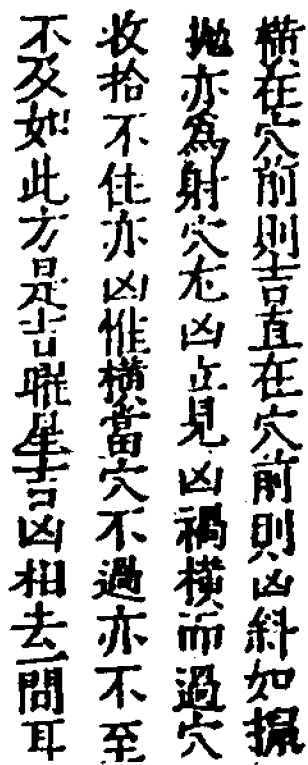 橫在穴前則吉直在穴前則凶斜如
拋亦爲射穴尤凶立見凶禍橫而過穴
收拾不住亦凶惟橫當穴不過亦不至
不及如此方是吉曜星吉凶相去一間耳